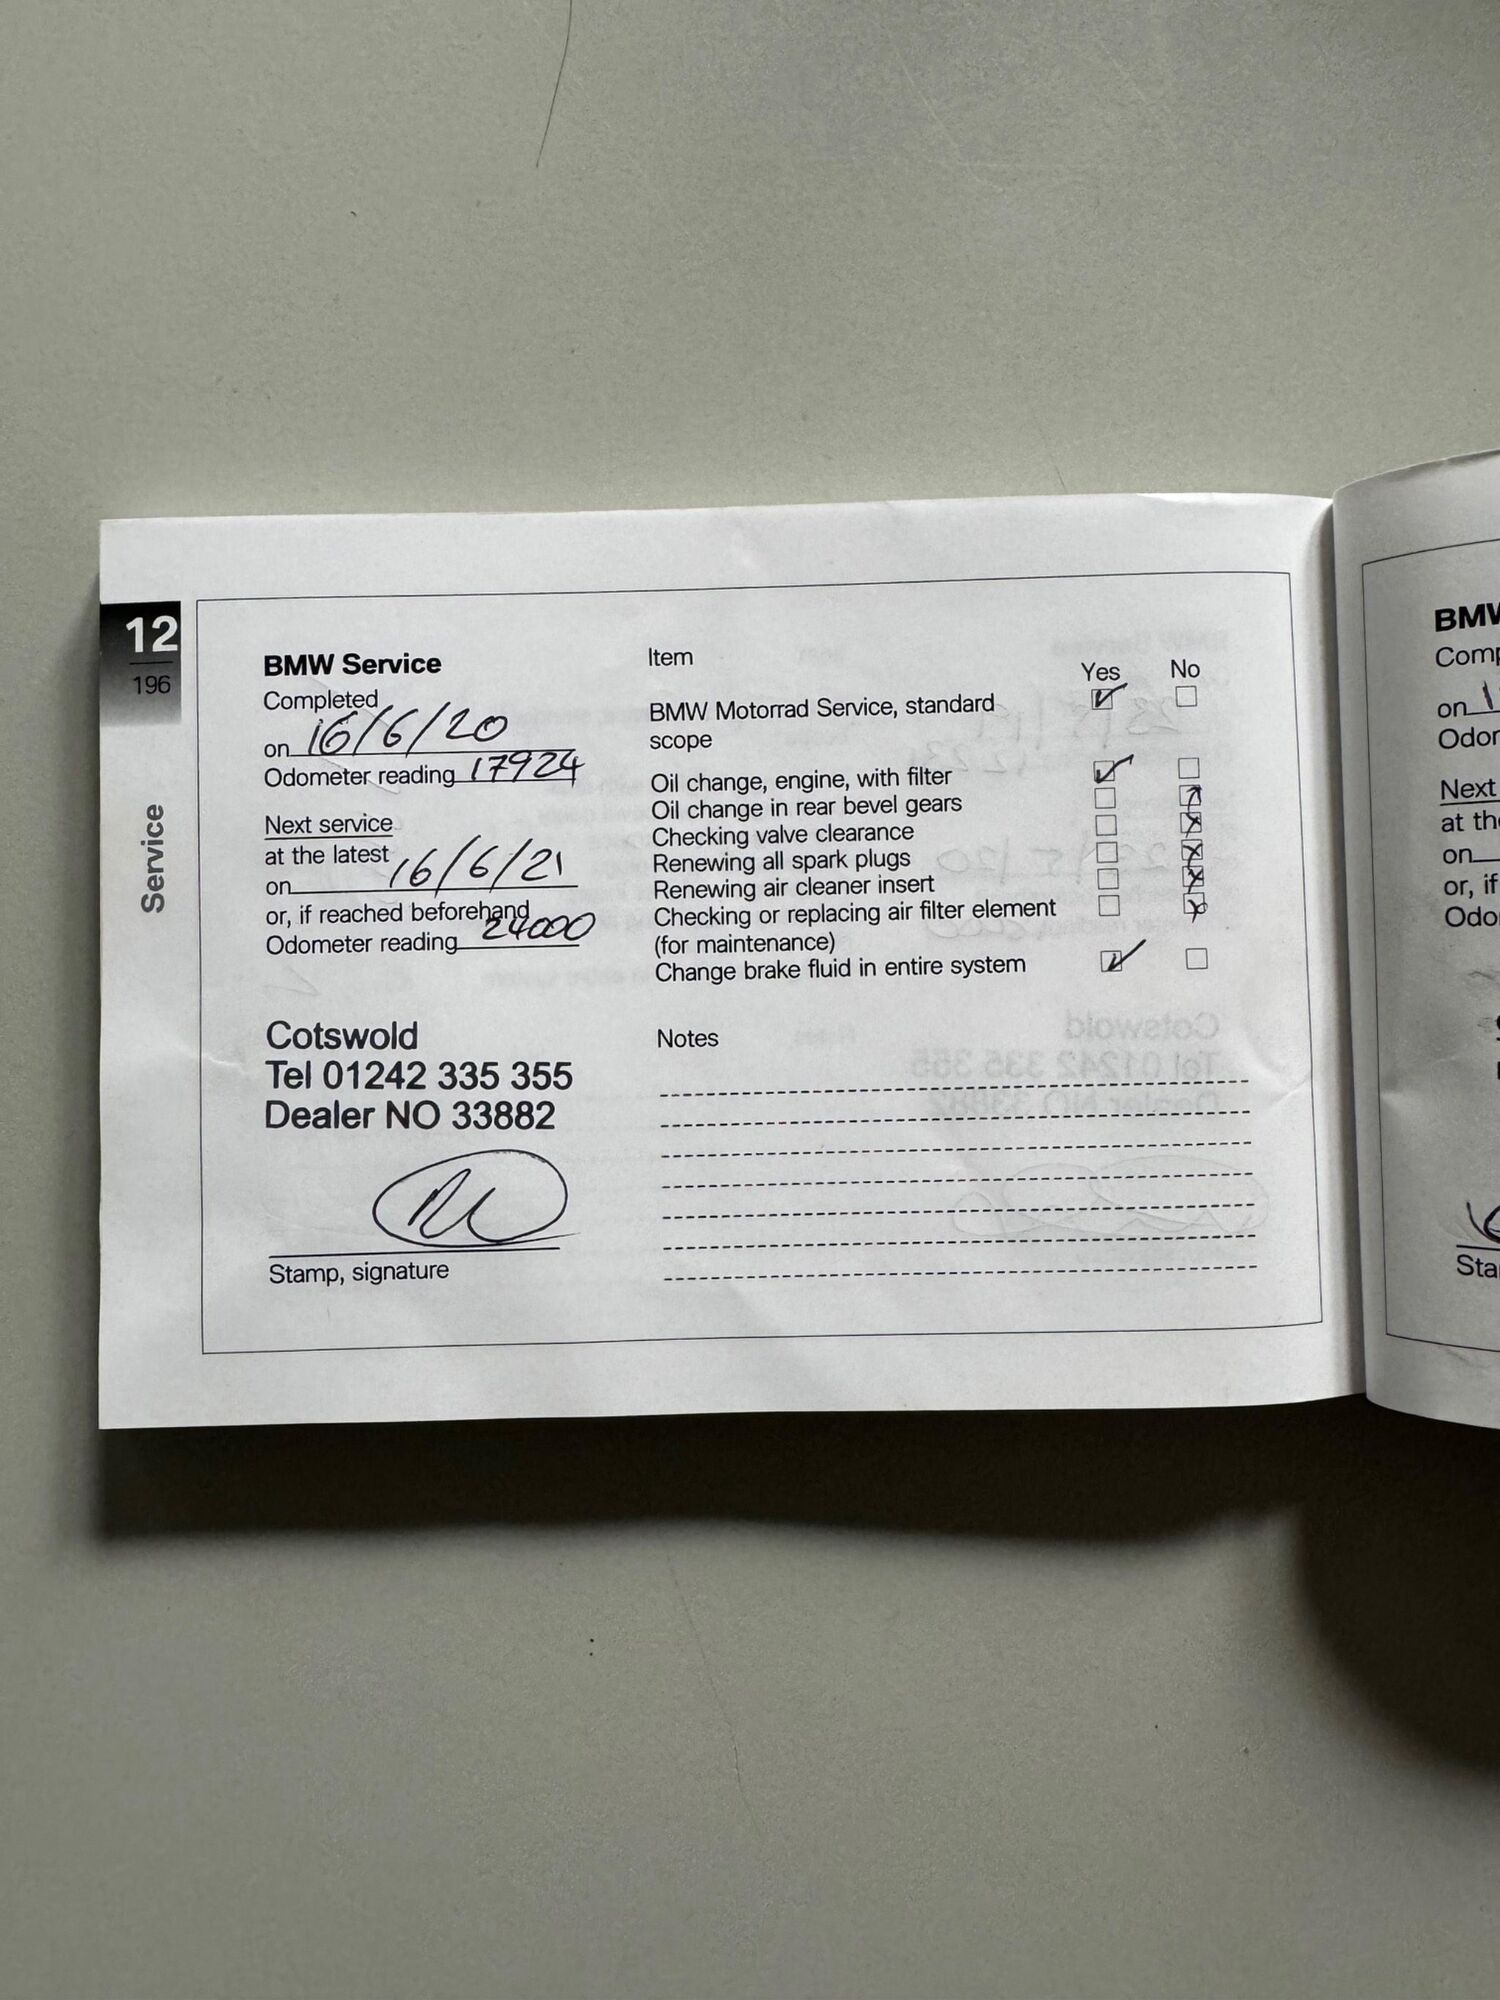 12
196
Service
BMW Service
Completed
on 16/6/20
Odometer reading 17924
Next service
at the latest
on 16/6/21
or, if reached beforehand
Odometer reading 24000
Cotswold
Tel 01242 335 355
Dealer NO 33882
Stamp, signature
Item
Yes No
BMW Motorrad Service, standard
scope
Oil change, engine, with filter
Oil change in rear bevel gears
Checking valve clearance
Renewing all spark plugs
Renewing air cleaner insert
Checking or replacing air filter element
(for maintenance)
Change brake fluid in entire system
Notes
BMW
Comp
on 1
Odor
Next
at the
on
or, if
Odo
Sta